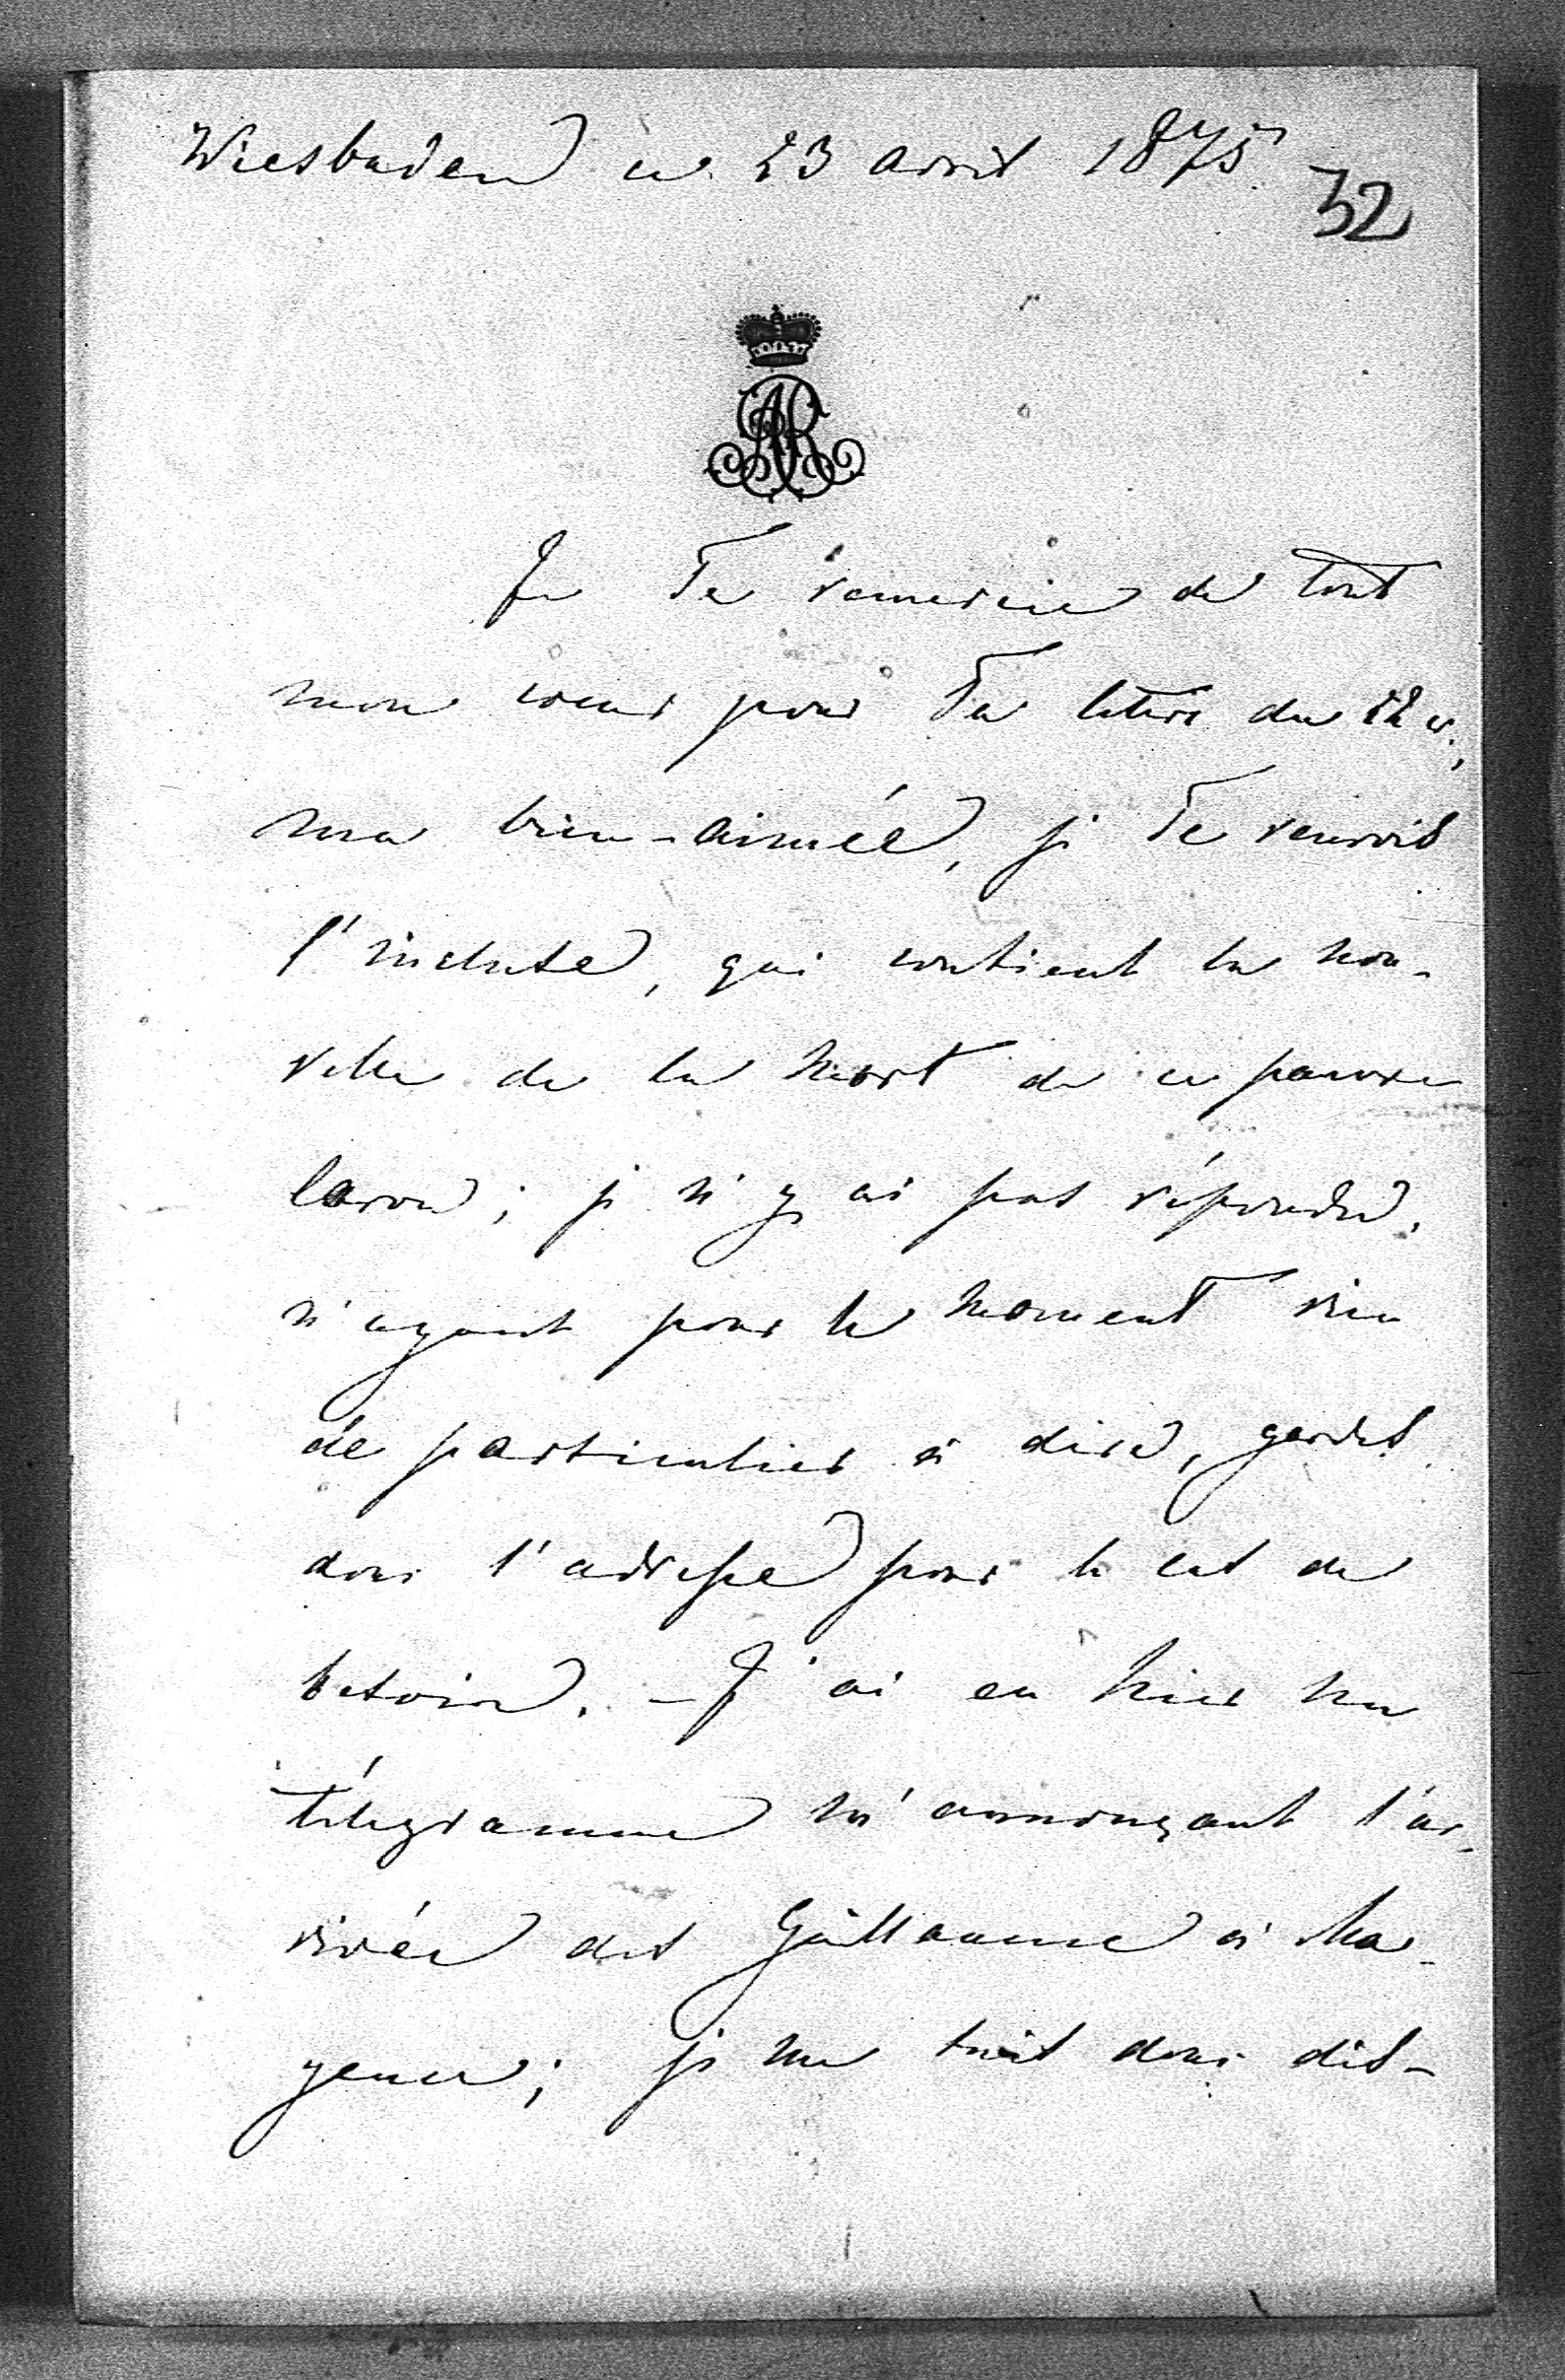 Wiesbaden ce 23 avril 1875
32
AR
Je Te remercie de tout
mon coeur pour Ta lettre du 22 c.,
ma bien-aimée, je Te renvois
l'incluse, qui contient la nou-
velle de la mort de ce pauvre
baron; je n'y ai pas répondu,
n'ayant pour le moment rien
de particulier à dire, gardes
donc l'adresse pour le cas de
besoin. - J'ai eu hier un
télégramme m'annonçant l'ar-
rivée des Guillaume à Ma-
yence; je me suis donc dis-